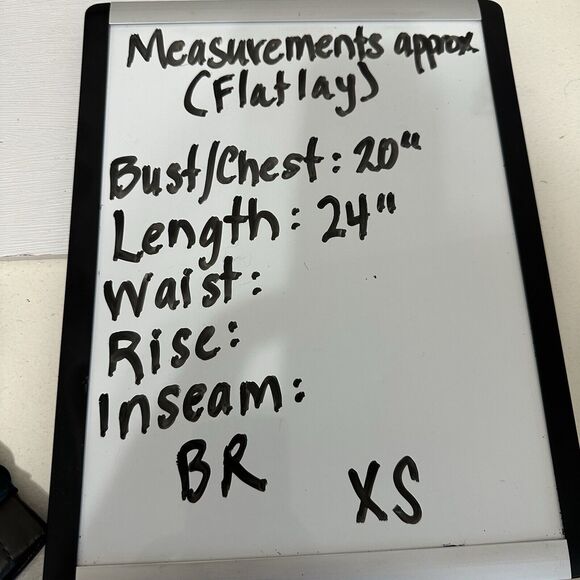 Measurements approx.
(Flatlay)
Bust/Chest: 20"
Length: 24"
Waist:
Rise:
Inseam:
BR XS